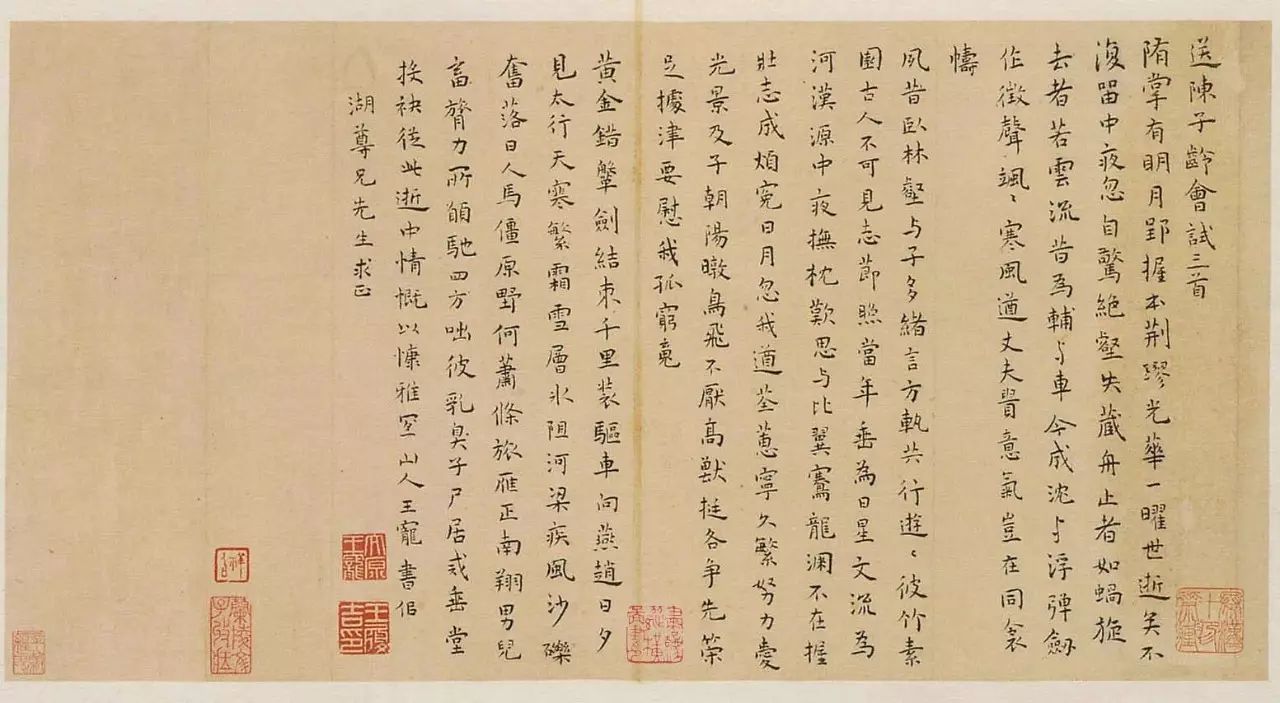 送陳子齡會試三首
隋掌有明月郢握本荆璆光華一曜世逝矣不
復留中夜忽自驚絕壑失藏舟止者如蝸旋
去者若雲流昔為輔与車今成沈与浮彈劒
作徵聲颯〻寒風遒丈夫
意氣豈在同衾
幬
夙昔臥林壑与子多緒言方軌共行遊〻彼竹素
園古人不可見志節照當年垂為日星文流為
河漢源中夜撫枕歎思与比翼鶱龍淵不在握
壯志成煩寃日月忽我遒荃蕙寧久繁努力愛
光景及子朝陽暾鳥飛不厭高獸挺各爭先榮
足據津要慰我孤窮
黃金錯鞶劍結束千里裝驅車向燕趙日夕
見太行天寒繁霜雪層冰阻河梁疾風沙礫
奮落日人馬僵原野何蕭條旅雁正南翔男兒
富膂力所願馳四方咄彼乳臭子尸居戒垂堂
挍袂從此逝中情慨以慷雅宜山人王寵書伯
湖尊兄先生求正
王寵
王履吉印